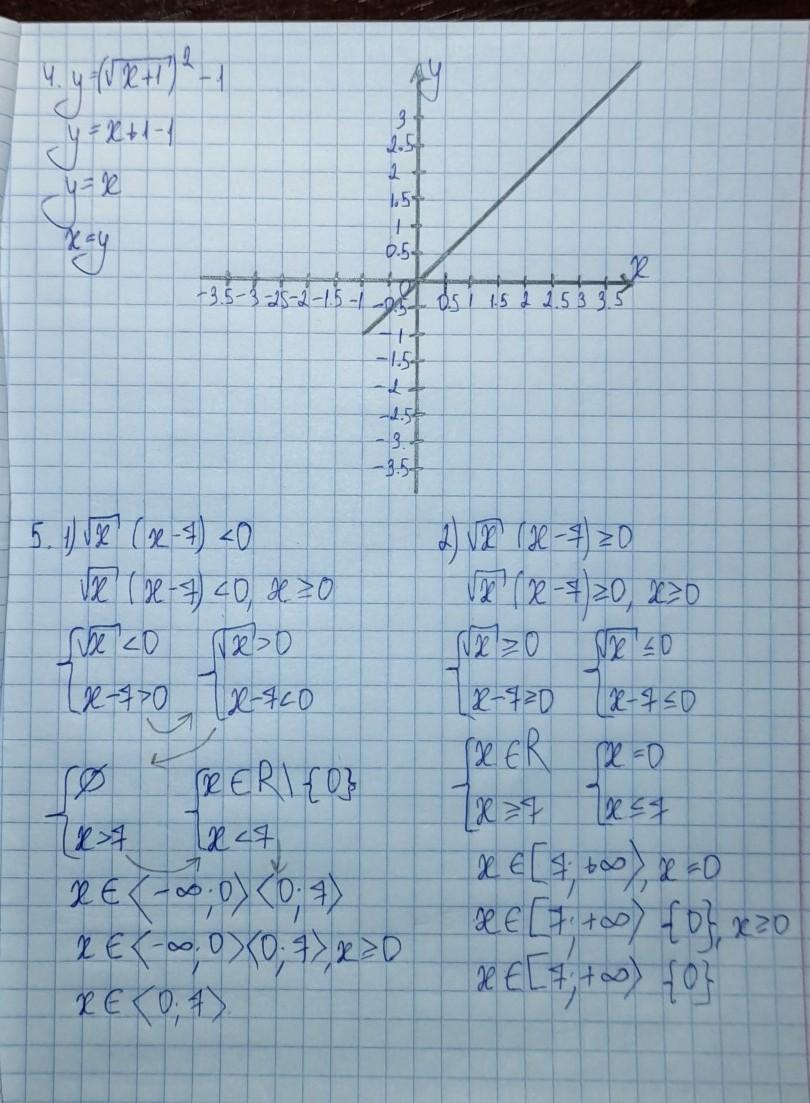 4. y=(√x+1)² -1
y = x+1-1
y = x
x=y
y
3
2.5
2
1.5
1
0.5
x
0
-3.5 -3 -2.5 -2 -1.5 -1 -0.5 0.5 1 1.5 2 2.5 3 3.5
-1
-1.5
-2
-2.5
-3
-3.5
5. 1) √x (x-7) <0
√x (x-7) <0, x ≥0
{√x <0 {√x >0
x-7>0 x-7<0
{∅ {x ∈ R \ {0}
x>7 x <7
x ∈ ⟨-∞; 0⟩ ⟨0; 7⟩
x ∈ ⟨-∞; 0⟩ ⟨0; 7⟩, x ≥0
x ∈ ⟨0; 7⟩
2) √x (x-7) ≥0
√x (x-7) ≥0, x≥0
{√x ≥0 {√x ≤0
x-7≥0 x-7 ≤0
{x ∈ R {x =0
x ≥7 x ≤7
x ∈ [7; +∞⟩, x =0
x ∈ [7; +∞⟩ {0}, x ≥0
x ∈ [7; +∞⟩ {0}